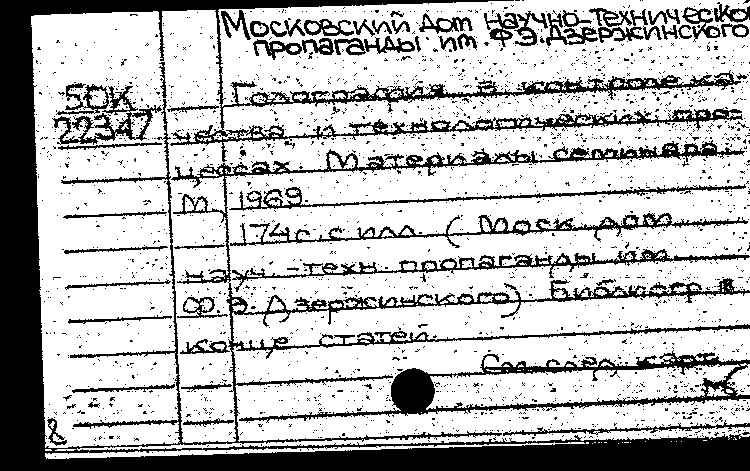 Московский дом научно-техническо
пропаганды им. Ф.Э.Дзержинского
БОК
22347
Голография в контроле ка-
чества и технологических про-
цессах. Материалы семинара.
М., 1969.
174 с. с илл. (Моск. дом
науч.-техн. пропаганды им.
Ф.Э. Дзержинского) Библиогр. в
конце статей.
См. след. карт.
8